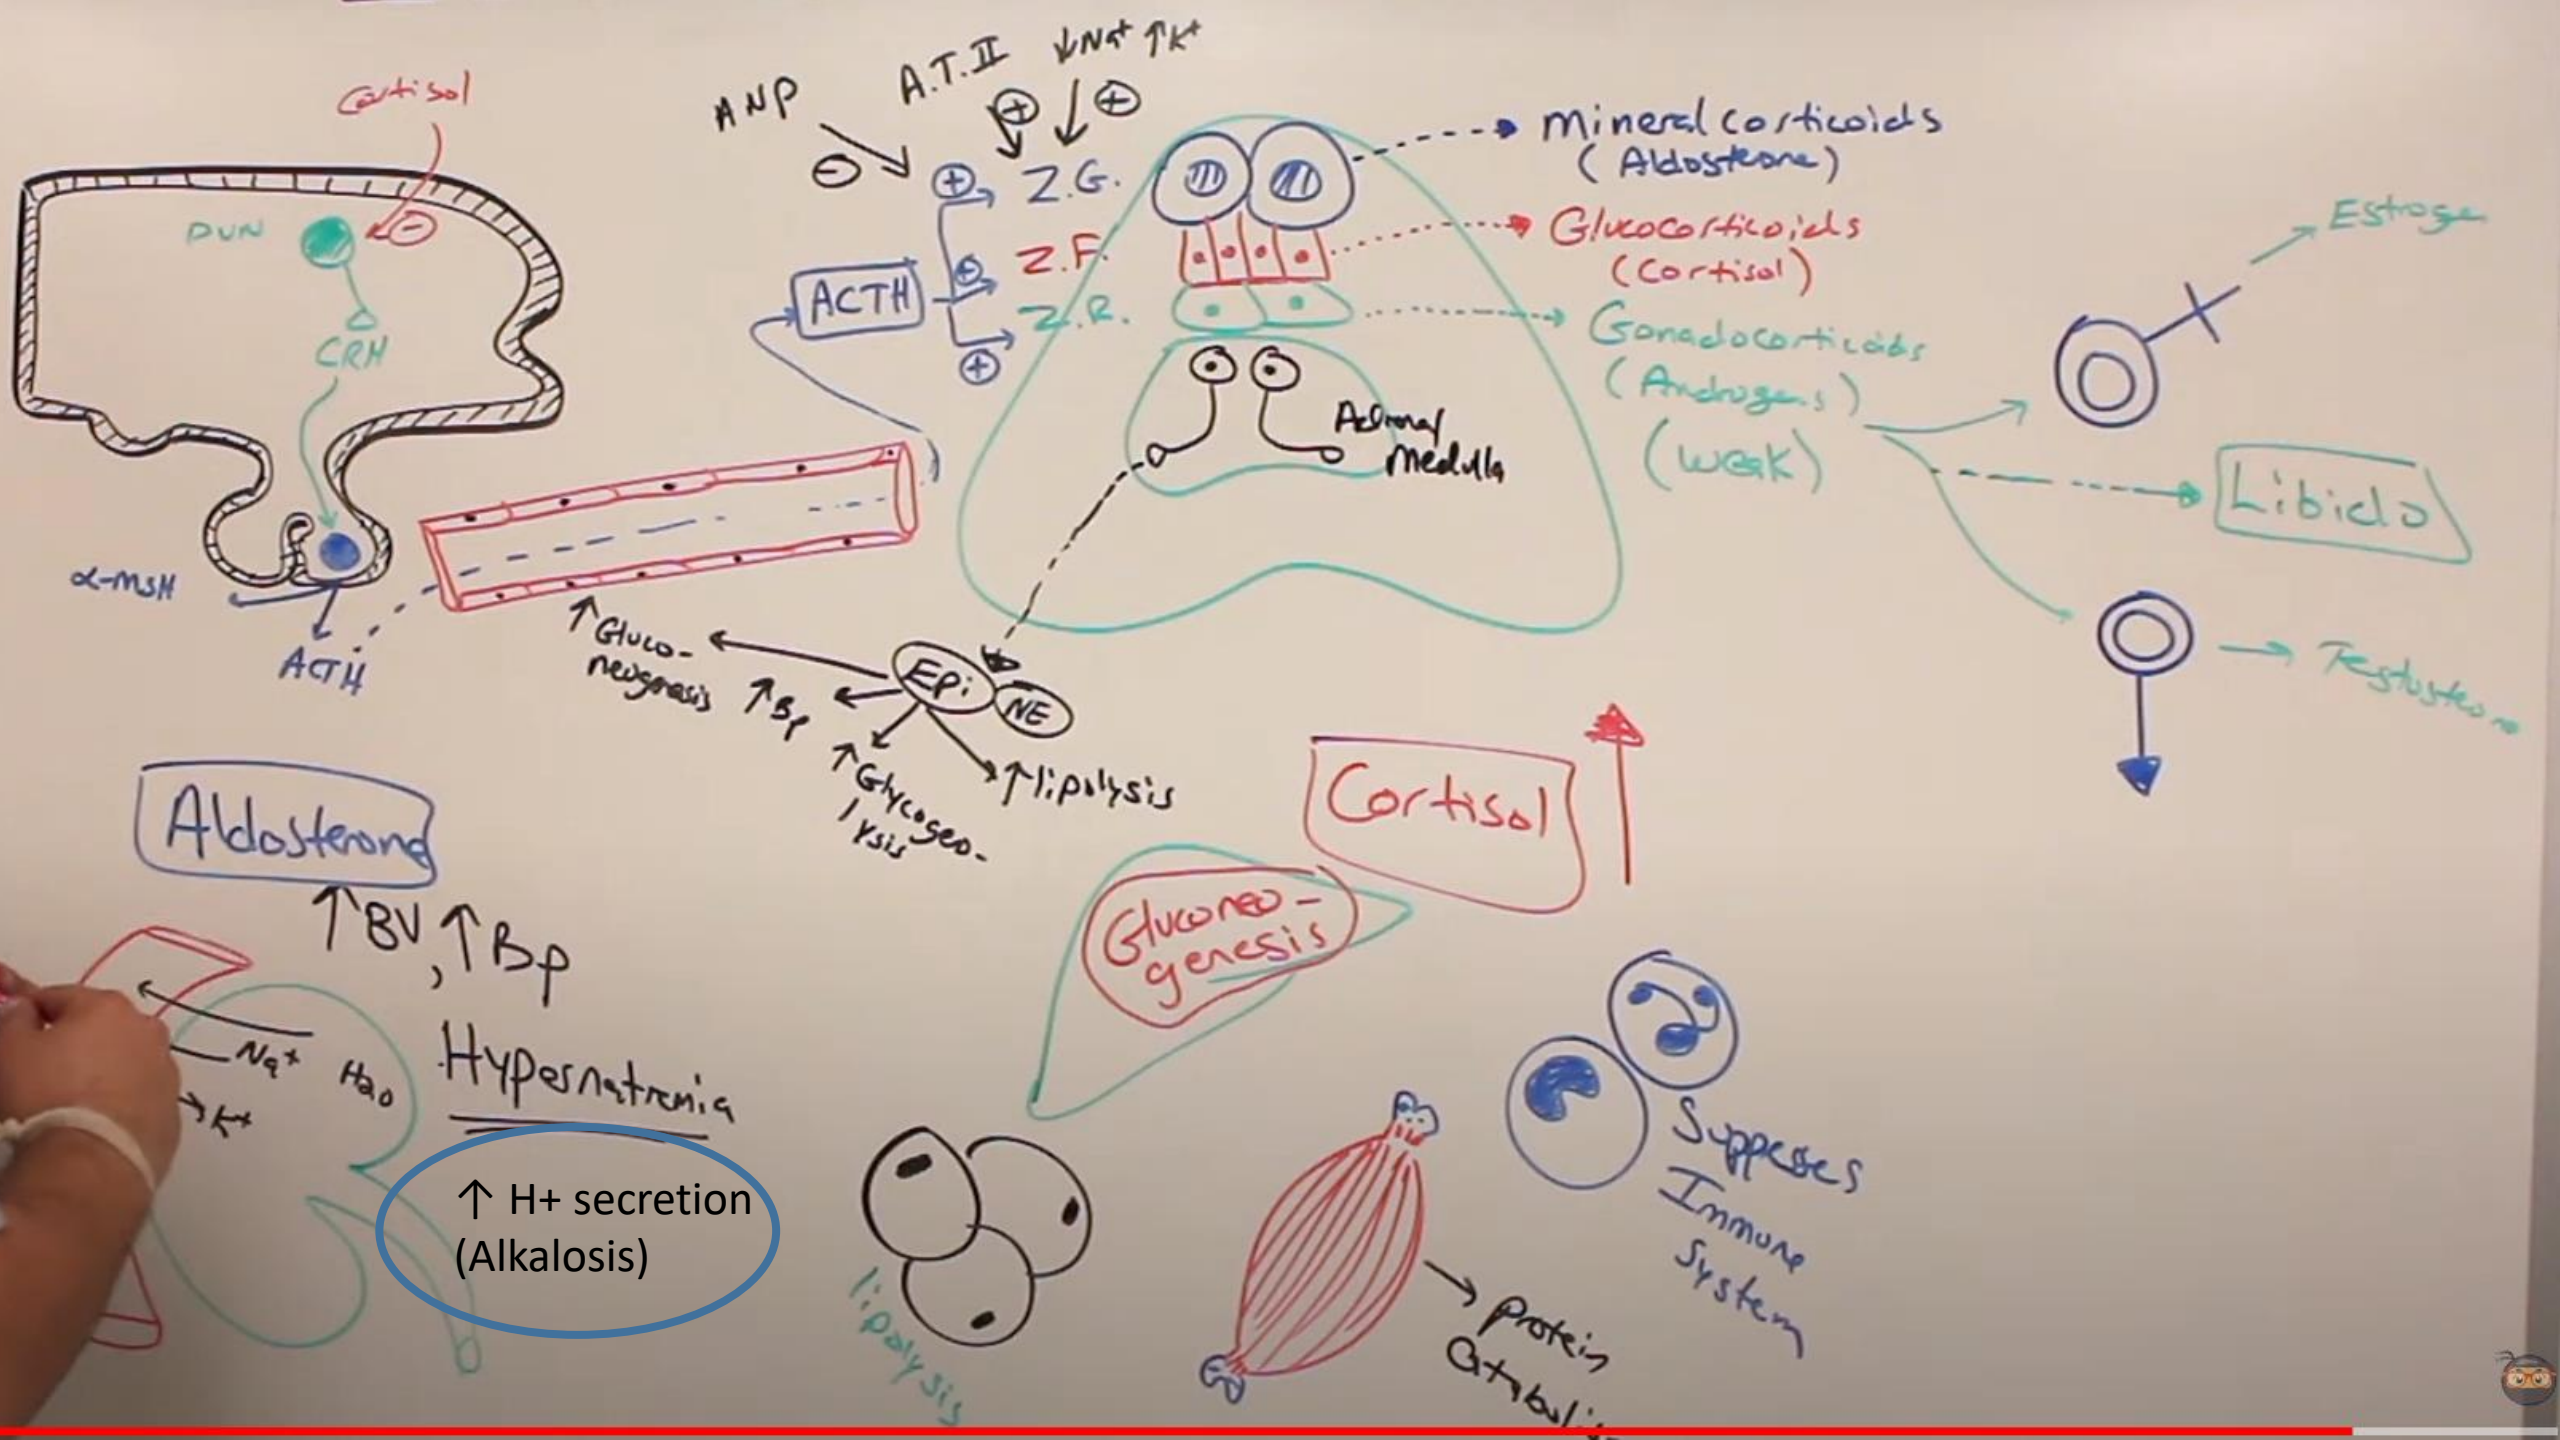 Cortisol
PVN
CRH
α-MSH
ACTH
ANP
A.T.II
↓Na+ ↑K+
Z.G.
Z.F.
Z.R.
ACTH
Mineralcorticoids
(Aldosterone)
Glucocorticoids
(Cortisol)
Gonadocorticoids
(Androgens)
(weak)
Libido
Adrenal
Medulla
Epi
NE
↑Gluco-
↑Bp
↑Glycogeo-
lysis
↑lipolysis
Aldosterone
↑BV, ↑Bp
Na+ H2O
K+
Hypernatremia
↑ H+ secretion
(Alkalosis)
Cortisol
Gluconeo-
genesis
lipolysis
Protein
Immune
System